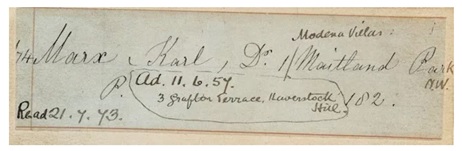 Modena Villas:
74 Marx Karl, Dr. 1/ Maitland Park
N.W.
P. Ad. 11.6.57. 182.
3 Grafton Terrace, Haverstock
Hill.
Read 21.7.73.